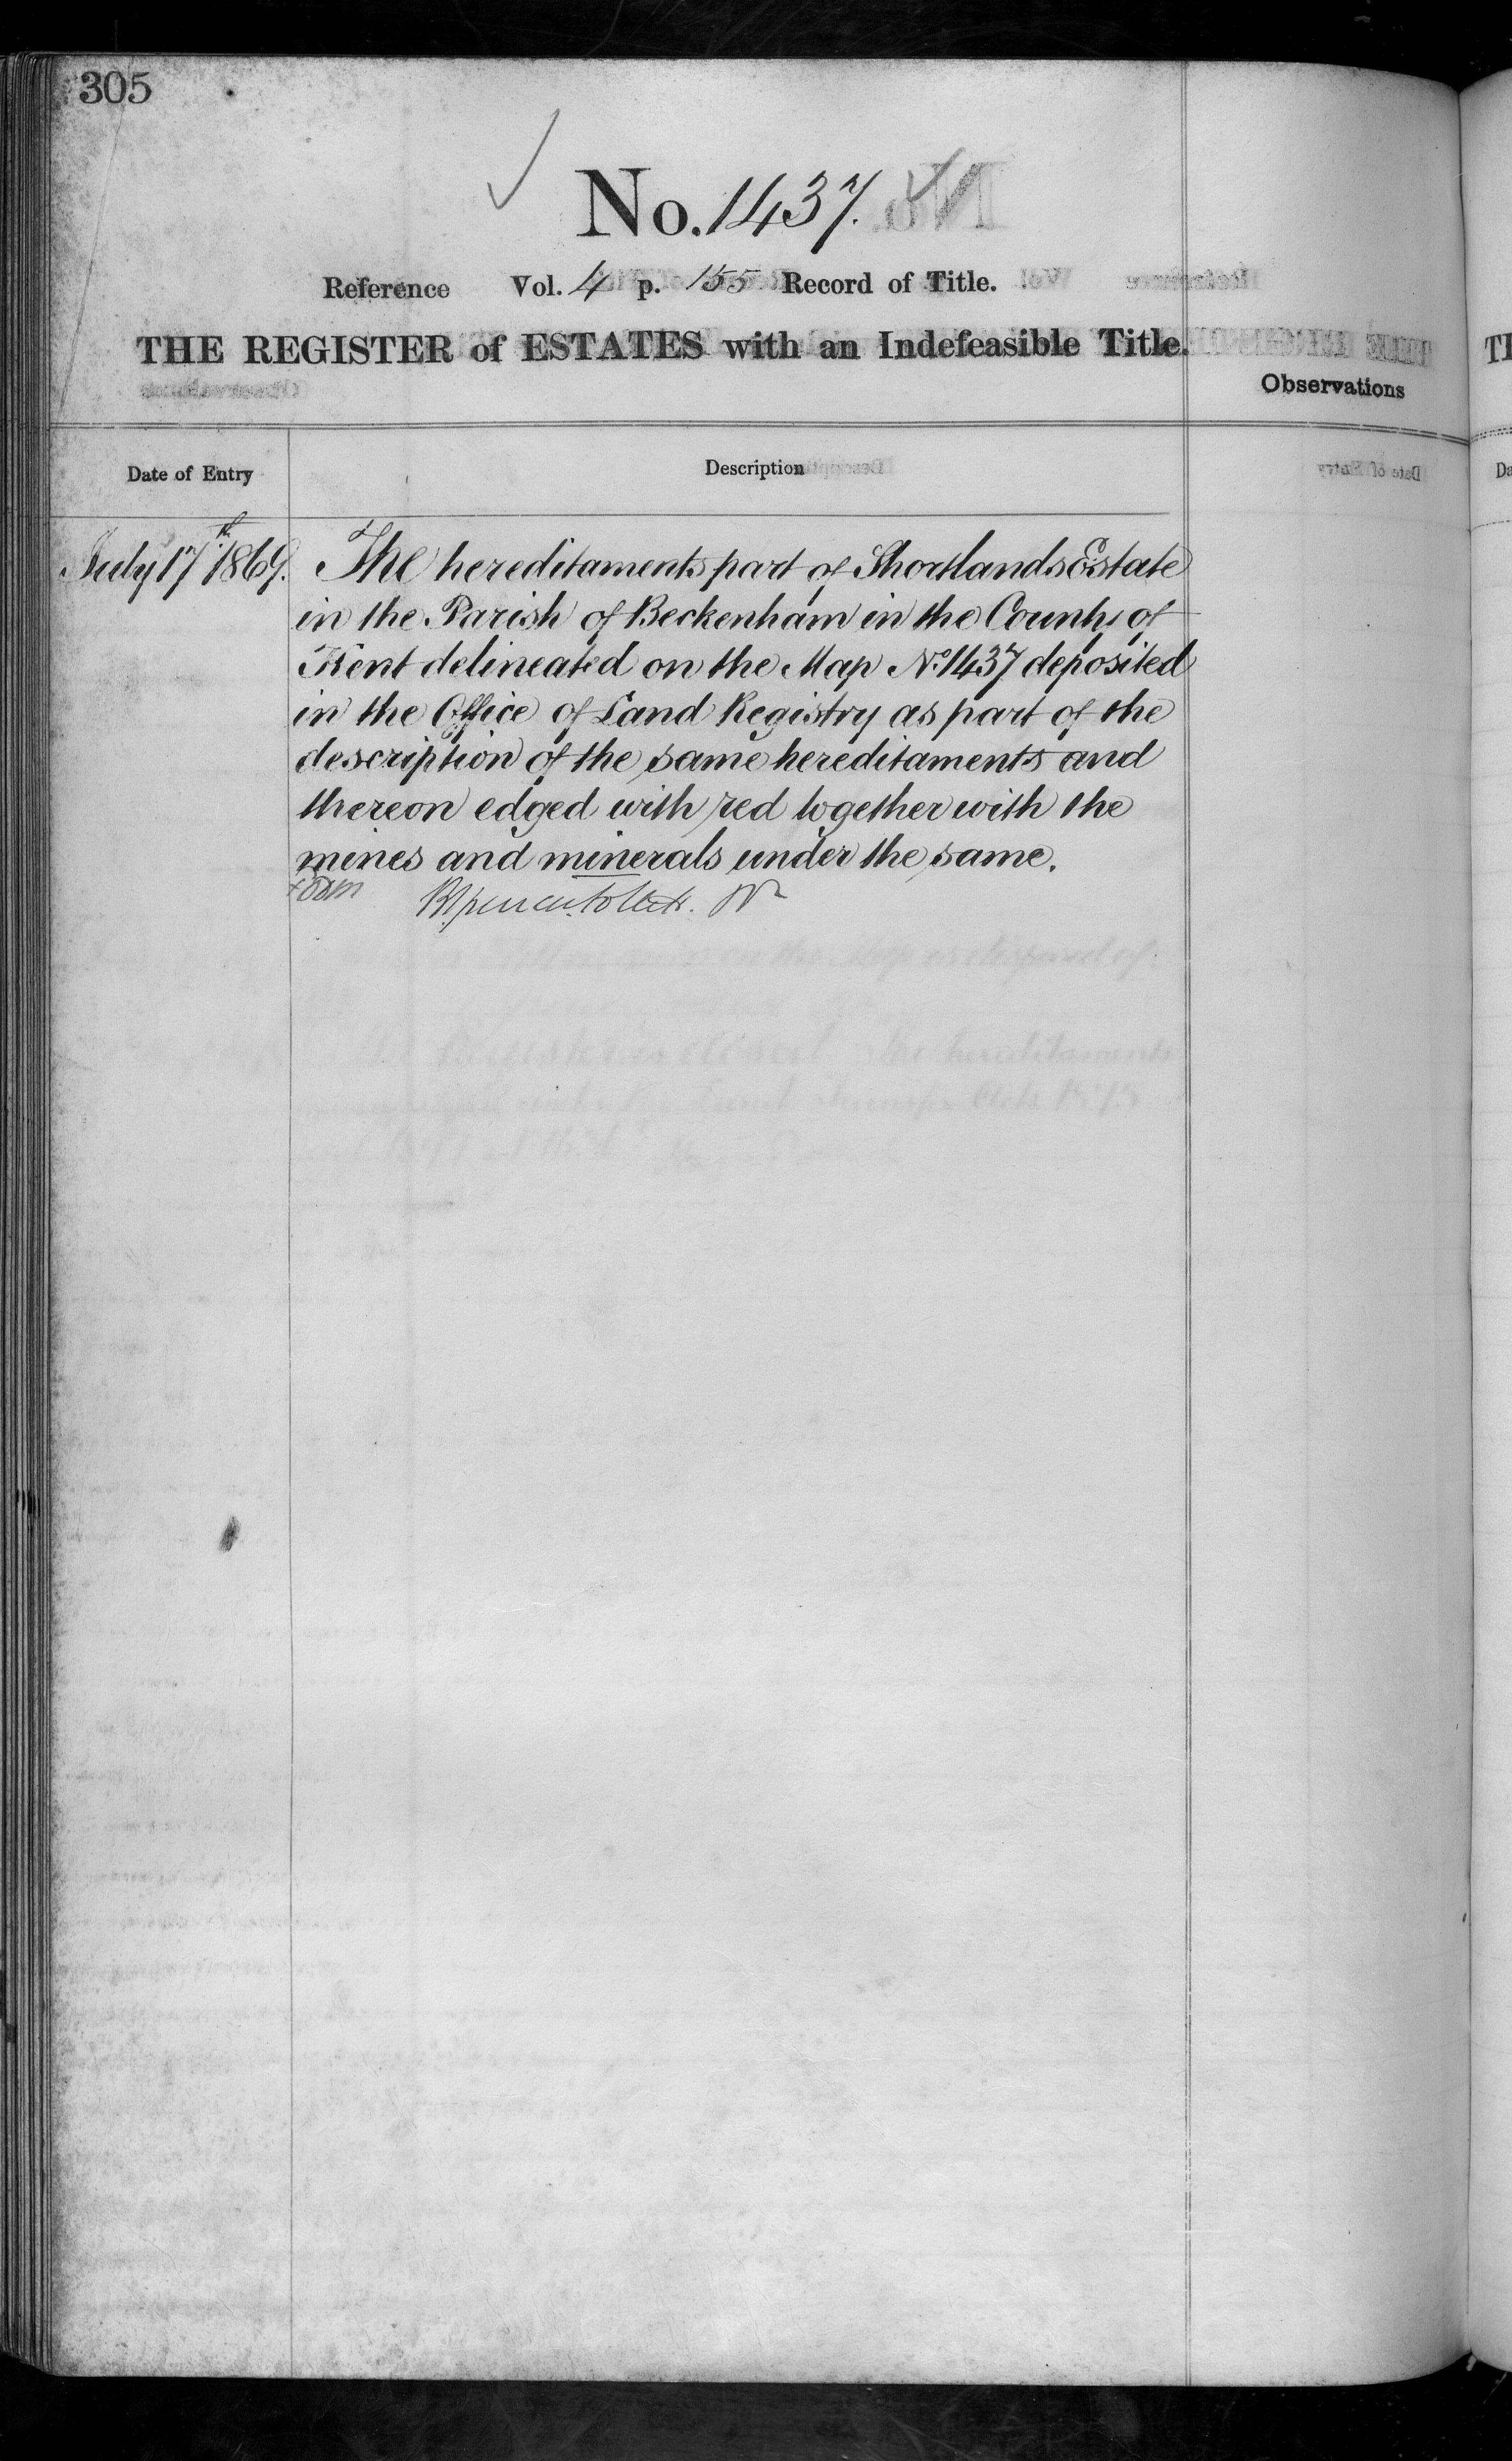 305
No. 1437.
Reference Vol. 4 p. 155 Record of Title.
THE REGISTER of ESTATES with an Indefeasible Title.
Observations
Date of Entry
Description
July 17th 1869.
The hereditaments part of Shortlands Estate
in the Parish of Beckenham in the County of
Kent delineated on the Map No. 1437 deposited
in the Office of Land Registry as part of the
description of the same hereditaments and
thereon edged with red together with the
mines and minerals under the same.